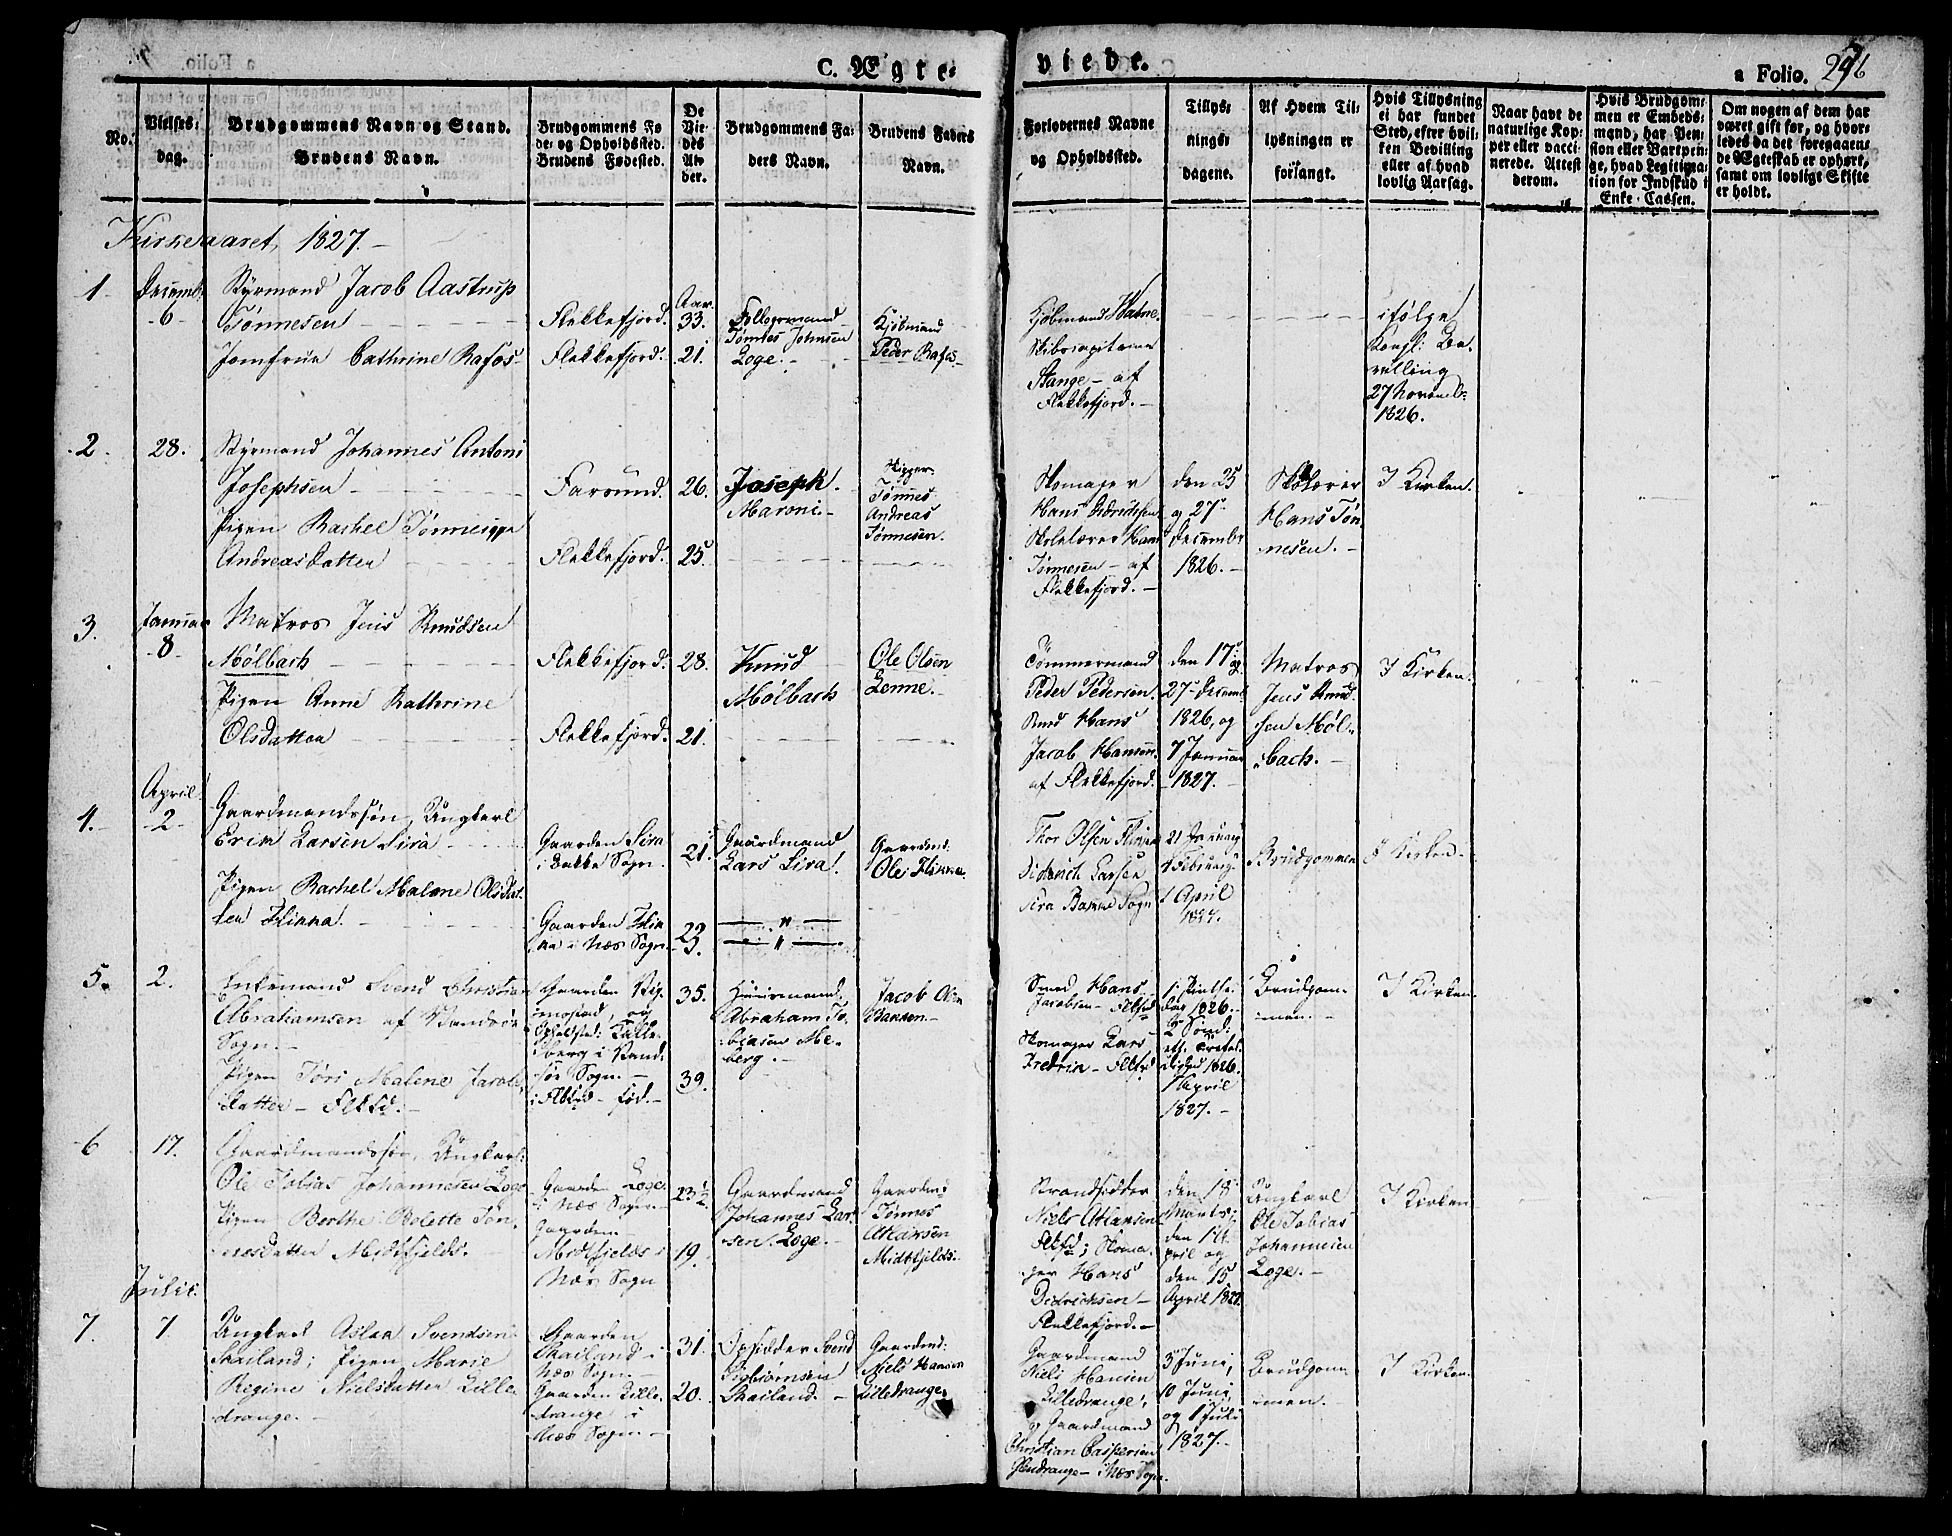 C. Ægte-
viede.
a Folio. 296
No.
Vielses-
dag.
Brudgommens Navn og Stand.
Brudens Navn.
Brudgommens Fø
de- og Opholdssted.
Brudens Fødested.
De
Vie-
des
Al-
der.
Brudgommens Fa-
ders Navn.
Brudens Faders
Navn.
Forlovernes Navne
og Opholdssted.
Tillys-
nings-
dagene.
Af Hvem Til-
lysningen er
forlangt.
Hvis Tillysning
ei har fundet
Sted, efter hvil-
ken Bevilling
eller af hvad
lovlig Aarsag.
Naar havt de
naturlige Kop-
per eller vacci-
nerede. Attest
derom.
Hvis Brudgom-
men er Embeds-
mand, har Pen-
sion eller Vartpen-
ge, hvad Legitima-
tion for Indskud i
Enke-Cassen.
Om nogen af dem har
været gift før, og hvor-
ledes da det foregaaen-
de Ægteskab er ophørt,
samt om lovligt Skifte
er holdt.
Kirkeaaret, 1827.
1
Decemb:
6
Styrmand Jacob Aastrup
Tønnesen
Jomfrue Cathrine Rafos
Flekkefjord.
Flekkefjord.
Aar.
33.
21.
Tømes Johnsen
Loge.
Kjøbmand
Peder Rafos
Kjøbmand
Skibscapitaine
Stange - af
Flekkefjord.
ifølge
Kongl: Be-
villing
27 Novemb:
1826.
2.
28.
Styrmand Johannes Antoni
Josephsen
Pigen Rachel
Andreasdatter
Farsund.
Flekkefjord.
26.
25.
Joseph
Maroni.
Skipper
Tønnes
Andreas
Tønnesen.
Skomager
Hans Didrichsen
Skolelærer Hans
Tønnesen - af
Flekkefjord.
den 25
og 27
Decembr
1826.
Skolelærer
Hans Tøn
nesen.
I Kirken.
3.
Januar
8
Matros Jens Knudsen
Mølbach
Pigen Anne Kathrine
Olsdatter
Flekkefjord.
Flekkefjord.
28.
21.
Knud
Mølbach
Ole Olsen
Lenne.
Tømmermand
Peder Pedersen.
Hans
Jacob Hansen.
af Flekkefjord.
den 17 og
27 Decemb
1826, og
7 Januar
1827.
Matros
Jens Knud
sen Møl-
bach.
I Kirken.
4.
April
2
Gaardmandssøn, Ungkarl
Erik Larsen Sira
Pigen Rachel Malene Olsdat-
ter Flikka.
Gaarden Sira
i Bakke Sogn.
Gaarden Flik
ka i Næs Sogn.
21.
Gaardmand
Lars Sira.
Gaardmd:
Ole Flikka.
Thor Olsen Flikka
Didrich Larsen
Sira Bakke Sogn
21 January
4 February
1 April
1827.
Brudgommen
I Kirken.
5.
2.
Enkemand Svend Christian
Abrahamsen af
Sogn.
Pigen Tøri Malene Jacobs
datter - Flkfd.
35.
39.
Huusmand
Abraham To-
biasen
berg.
Jacob Olsen
Smed Hans
Jacobsen - Flkfd
Skomager Lars
Fredrik - Flkfd
1826.
1 April
1827.
Brudgom-
men.
I Kirken.
6
17.
Gaardmandssøn, Ungkarl
Ole Tobias Johannesen Loge
Pigen Berthe Bolette Tøn-
nesdatter Midtfjelds.
Gaarden Loge
i Næs Sogn.
Gaarden
Midtfjelds i
Næs Sogn
23½
19.
Gaardmand
Johannes Lar-
sen Loge.
Gaardmd
Tønnes
Atlaksen
Midtfjelds.
Strandsidder
Niels Atlaksen
Flkfd; Skoma-
ger Hans
Didrichsen
Flekkefjord.
den 18
Marts;
den 1 A-
pril og
den 15
April 1827.
Ungkarl
Ole Tobias
Johannesen
Loge.
I Kirken
7.
Julii.
7
Ungkarl Aslak Svendsen
Skailand; Pigen Marie
Regine Nielsdatter Lille-
drange.
Gaarden
Skailand i
Næs Sogn.
Gaarden Lille-
drange i
Næs Sogn
31.
20.
Svend
Skailand.
Gaardmd:
Niels Hansen
Lilledrange.
Gaardmand
Niels Hansen
Lilledrange,
og Gaardmand
Christian Caspersen
3 Juni,
10 Juni,
og 1 Juli
1827.
Brudgom-
men.
I Kirken.